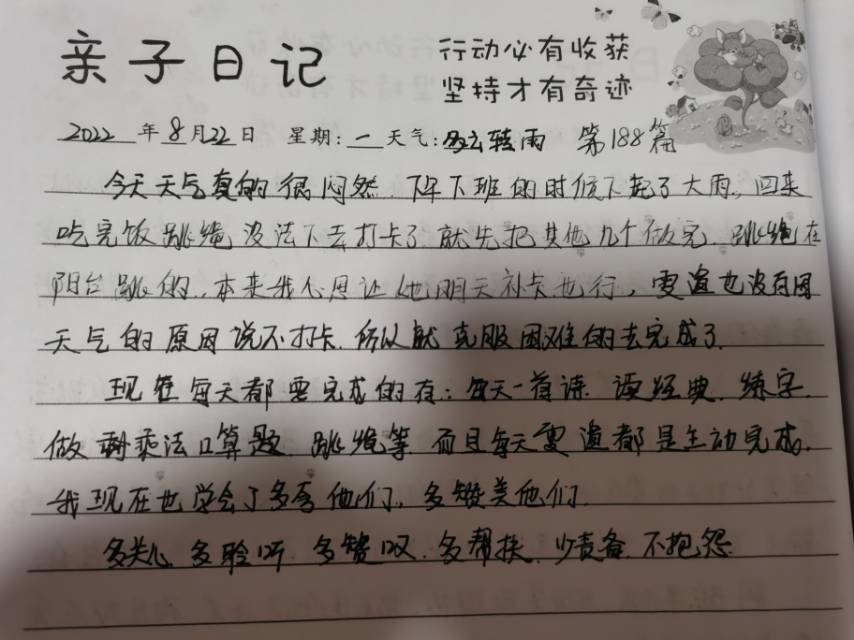 亲子日记
行动必有收获
坚持才有奇迹
2022年8月22日 星期:一 天气:多云转雨 第188篇
今天天气真的很闷热.下午下班的时候下起了大雨,回来
吃完饭跳绳没法下去打卡了.就先把其他几个做完.跳绳在
阳台跳的.本来我心思让他明天补卡也行,雯道也没有因
天气的原因说不打卡.所以就克服困难的去完成了.
现在每天都要完成的有:每天一首诗.读经典.练字.
做剩乘法口算题.跳绳等.而且每天雯道都是主动完成.
我现在也学会了多夸他们,多赞美他们.
多关心.多聆听.多赞叹.多帮扶.少责备.不抱怨.